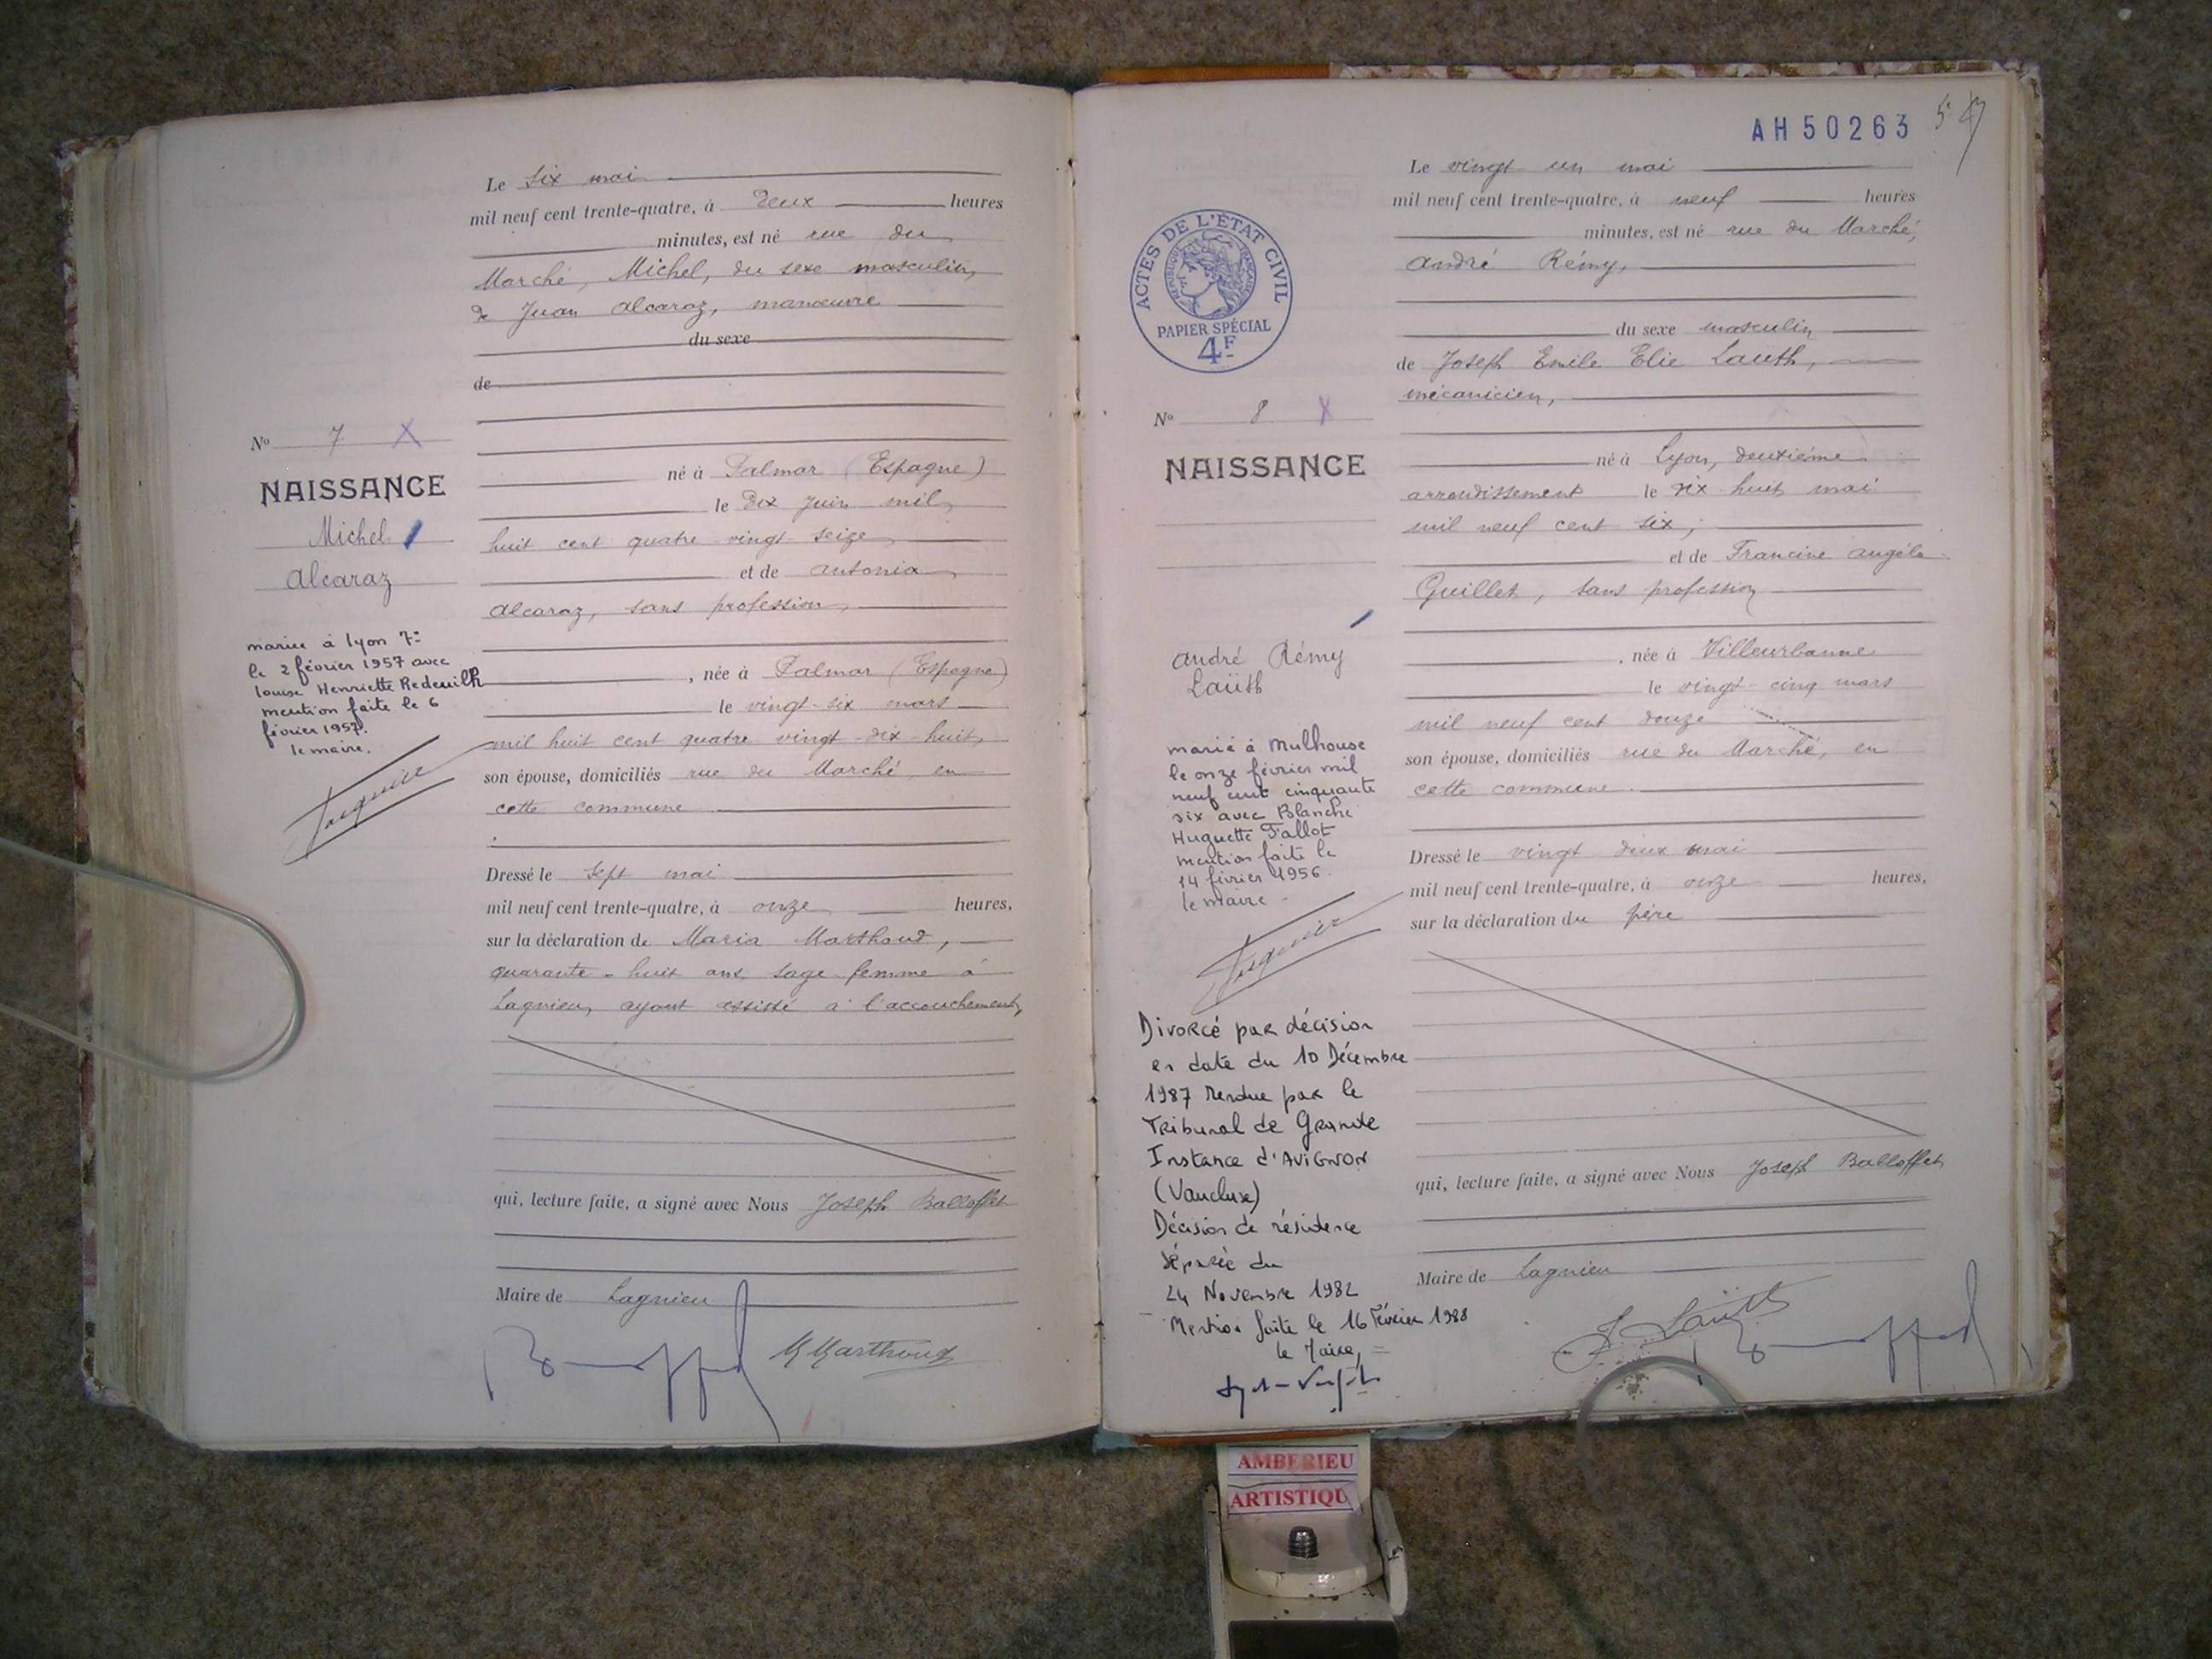 Le six mai
mil neuf cent trente-quatre, à deux heures
minutes, est né rue du
Marché, Michel, du sexe masculin,
de Juan Alcaraz, manœuvre
du sexe
de
né à Palmar (Espagne)
le dix juin mil
huit cent quatre vingt seize,
et de Antonia
Alcaraz, sans profession,
, née à Palmar (Espagne)
le vingt-six mars
mil huit cent quatre vingt-dix-huit,
son épouse, domiciliés rue du Marché, en
cette commune.
Dressé le sept mai
mil neuf cent trente-quatre, à onze heures,
sur la déclaration de Maria Marthoud,
quarante-huit ans, sage-femme à
Lagnieu, ayant assisté à l'accouchement,
qui, lecture faite, a signé avec Nous Joseph Balloffet
Maire de Lagnieu
M Marthoud
No 7 X
NAISSANCE
Michel
Alcaraz
mariée à lyon 7e
le 2 février 1957 avec
louise Henriette Redeuilh
mention faite le 6
février 1957.
le maire.
AH50263
Le vingt un mai
mil neuf cent trente-quatre, à neuf heures
minutes, est né rue du Marché,
André Rémy,
du sexe masculin
de Joseph Emile Elie Laüth,
mécanicien,
né à Lyon, deuxième
arrondissement le dix huit mai
mil neuf cent six,
et de Francine Angèle
Guillet, sans profession
, née à Villeurbanne
le vingt-cinq mars
mil neuf cent douze
son épouse, domiciliés rue du Marché, en
cette commune.
Dressé le vingt deux mai
mil neuf cent trente-quatre, à onze heures,
sur la déclaration du père
qui, lecture faite, a signé avec Nous Joseph Balloffet
Maire de Lagnieu
J. Laüth
ACTES DE L'ÉTAT CIVIL
RÉPUBLIQUE FRANÇAISE
PAPIER SPÉCIAL
4F
No 8 X
NAISSANCE
André Rémy
Laüth
marié à Mulhouse
le onze février mil
neuf cent cinquante
six avec Blanche
Huguette Fallot
mention faite le
14 février 1956.
le maire.
Divorcé par décision
en date du 10 Décembre
1987 rendue par le
Tribunal de Grande
Instance d'AVIGNON
(Vaucluse)
Décision de résidence
séparée du
24 Novembre 1982
Mention faite le 16 Février 1988
le Maire,
AMBERIEU
ARTISTIQU